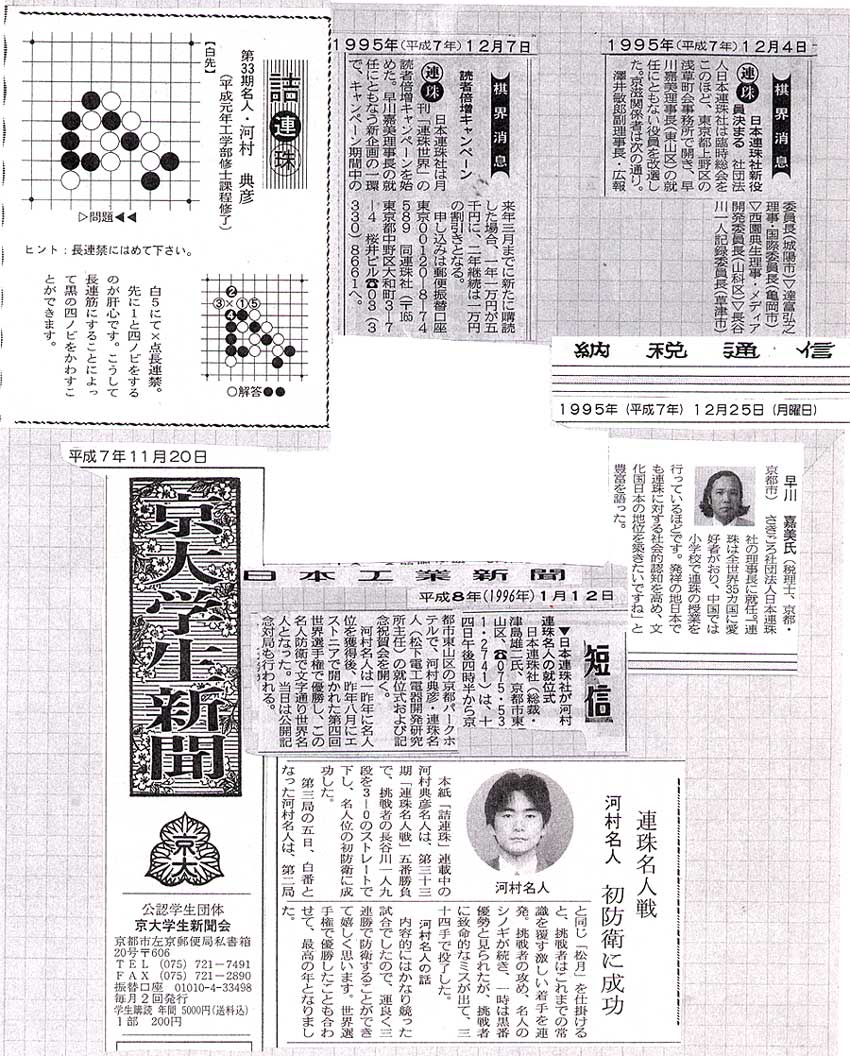 詰連珠
第33期名人・河村 典彦
(平成元年工学部修士課程修了)
【白先】
▷問題◀◀
ヒント：長連禁にはめて下さい。
②
③×①⑤
④
○解答●●
白5にて×点長連禁。
先に1と四ノビをする
のが肝心です。こうして
長連筋にすることによっ
て黒の四ノビをかわすこ
とができます。
1995年(平成7年)12月7日
棋界消息
連珠
読者倍増キャンペーン
日本連珠社は月
刊「連珠世界」の
読者倍増キャンペーンを始
めた。早川嘉美理事長の就
任にともなう新企画の一環
で、キャンペーン期間中の
来年三月までに新たに購読
した場合、一年一万円が五
千円に、二年継続は一万円
の割引きとなる。
申し込みは郵便振替口座
東京00120-8-74
589 同連珠社(〒165
東京都中野区大和町3-7
-4 桜井ビル☎03(3
330)8661へ。
1995年(平成7年)12月4日
棋界消息
連珠
日本連珠社新役
員決まる 社団法
人日本連珠社は臨時総会を
このほど、東京都上野区の
浅草町会事務所で開き、早
川嘉美理事長(東山区)の就
任にともない役員を改選し
た。京滋関係者は次の通り。
澤井敏郎副理事長・広報
委員長(城陽市)▽達富弘之
理事・国際委員長(亀岡市)
▽西園典生理事・メディア
開発委員長(山科区)▽長谷
川一人記録委員長(草津市)
納税通信
1995年(平成7年)12月25日(月曜日)
早川 嘉美氏(税理士、京都・
京都市) さきごろ社団法人日本連珠
社の理事長に就任。「連
珠は全世界35カ国に愛
好者がおり、中国では
小学校で連珠の授業を
行っているほどです。発祥の地日本で
も連珠に対する社会的認知を高め、文
化国日本の地位を築きたいですね」と
豊富を語った。
平成7年11月20日
京大学生新聞
京大
公認学生団体
京大学生新聞会
京都市左京郵便局私書箱
20号〒606
TEL (075) 721-7491
FAX (075) 721-2890
振替口座 01010-4-33498
毎月2回発行
学生購読 年間 5000円(送料込)
1部 200円
日本工業新聞
平成8年(1996年)1月12日
短信
▼日本連珠社が河村
連珠名人の就位式
日本連珠社(総裁・
津島雄二氏、京都市東
山区、☎075・53
1・2741)は、十
四日午後四時半から京
都市東山区の京都パークホ
テルで、河村典彦・連珠名
人(松下電工電器開発研究
所主任)の就位式および記
念祝賀会を開く。
河村名人は一昨年に名人
位を獲得後、昨年八月にエ
ストニアで開かれた第四回
世界選手権で優勝し、この
名人防衛で文字通り世界名
人となった。当日は公開記
念対局も行われる。
連珠名人戦
河村名人 初防衛に成功
河村名人
本紙「詰連珠」連載中の
河村典彦名人は、第三十三
期「連珠名人戦」五番勝負
で、挑戦者の長谷川一人九
段を3-0のストレートで
下し、名人位の初防衛に成
功した。
第三局の五日、白番と
なった河村名人は、第二局
と同じ「松月」を仕掛ける
と、挑戦者はこれまでの常
識を覆す激しい着手を連
発。挑戦者の攻め、名人の
シノギが続き、一時は黒番
優勢と見られたが、挑戦者
に致命的なミスが出て、三
十四手で投了した。
河村名人の話
内容的にはかなり競った
試合でしたので、運良く三
連勝で防衛することができ
て嬉しく思います。世界選
手権で優勝したことも合わ
せて、最高の年となりまし
た。